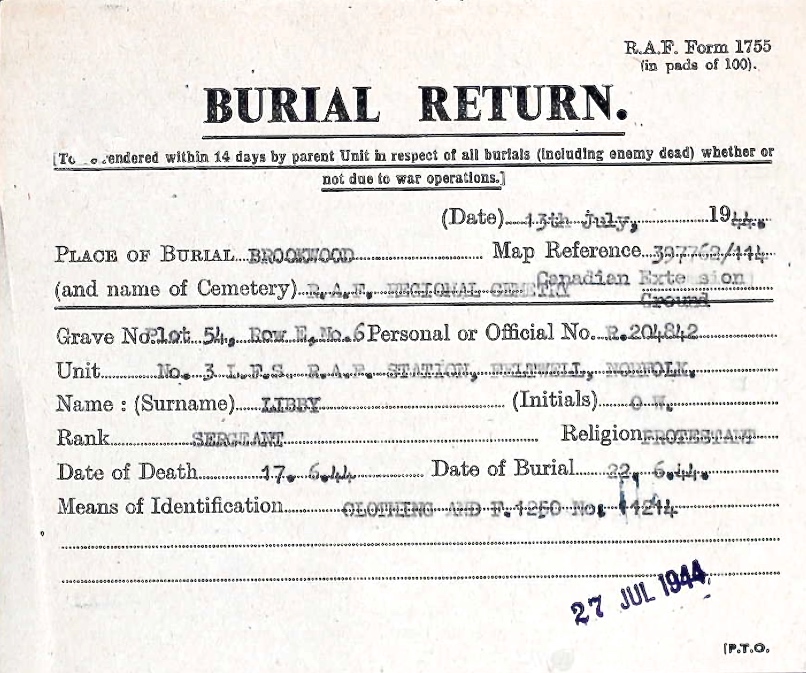 R.A.F. Form 1755
(in pads of 100).
BURIAL RETURN.
[To be rendered within 14 days by parent Unit in respect of all burials (including enemy dead) whether or
not due to war operations.]
(Date) 13th july, 1944.
PLACE OF BURIAL BROOKWOOD Map Reference 397762/114
Canadian Extension
(and name of Cemetery) R.A.F. REGIONAL CEMETRY Ground
Grave No. Plot 54, Row E, No. 6 Personal or Official No. R.204842
Unit No. 3 L.F.S. R.A.F. STATION, FELTWELL, NORFOLK.
Name : (Surname) LIBBY (Initials) O.W.
Rank SERGEANT Religion PROTESTANT
Date of Death 17. 6.44 Date of Burial 22. 6.44.
Means of Identification CLOTHING AND F.1250 No:
27 JUL 1944
[P.T.O.